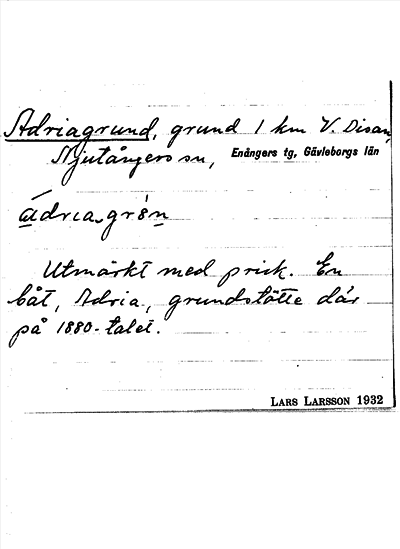 Adriagrund, grund 1 km V. Disan,
Njutångers sn, Enångers tg, Gävleborgs län
ádria grǝ́n
Utmärkt med prick. En
båt, Adria, grundstötte där
på 1880-talet.
LARS LARSSON 1932